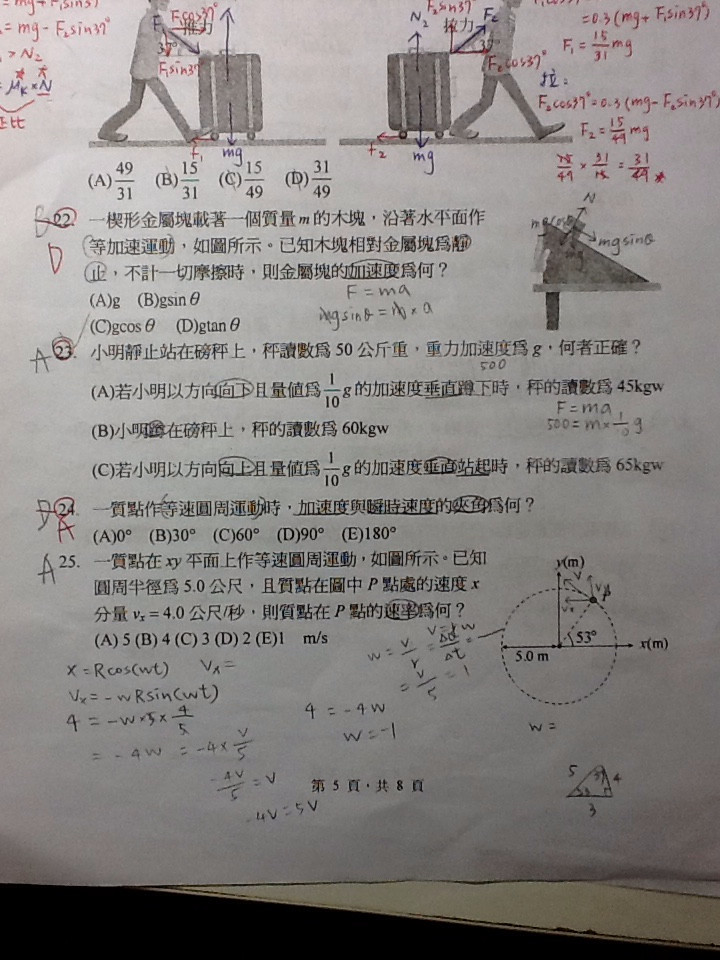 = mg - F₂sin37°
> N₂
= μₖ × N
正比
F₁cos37°
推力
37°
F₁sin37°
f₁
mg
N₂
F₂sin37°
拉力
F₂
37°
F₂cos37°
f₂
mg
=0.3(mg+F₁sin37°)
F₁ = 15/31 mg
拉:
F₂cos37° = 0.3(mg-F₂sin37°)
F₂ = 15/49 mg
15/49 × 31/15 = 31/49
(A) 49/31 (B) 15/31 (C) 15/49 (D) 31/49
D
22. 一楔形金屬塊載著一個質量 m 的木塊，沿著水平面作
等加速運動，如圖所示。已知木塊相對金屬塊為靜
止，不計一切摩擦時，則金屬塊的加速度為何？
(A)g (B)gsin θ
(C)gcos θ (D)gtan θ
F = ma
mgsinθ = m × a
N
mgcosθ
mgsinθ
mg
θ
A
23. 小明靜止站在磅秤上，秤讀數為 50 公斤重，重力加速度為 g，何者正確？
500
(A)若小明以方向向下且量值為 1/10 g 的加速度垂直蹲下時，秤的讀數為 45kgw
F = ma
500 = m × 1/10 g
(B)小明蹲在磅秤上，秤的讀數為 60kgw
(C)若小明以方向向上且量值為 1/10 g 的加速度垂直站起時，秤的讀數為 65kgw
D
A
24. 一質點作等速圓周運動時，加速度與瞬時速度的夾角為何？
(A)0° (B)30° (C)60° (D)90° (E)180°
A
25. 一質點在 xy 平面上作等速圓周運動，如圖所示。已知
圓周半徑為 5.0 公尺，且質點在圖中 P 點處的速度 x
分量 vₓ = 4.0 公尺/秒，則質點在 P 點的速率為何？
(A) 5 (B) 4 (C) 3 (D) 2 (E)1 m/s
y(m)
P
53°
x(m)
5.0 m
x = Rcos(wt) Vₓ =
Vₓ = -wRsin(wt)
4 = -w×5×4/5
= -4w = -4×V/5
-4V/5 = V
4V = 5V
w = V/r
= V/5 = 1
4 = -4w
w = -1
w =
5
4
3
第 5 頁，共 8 頁